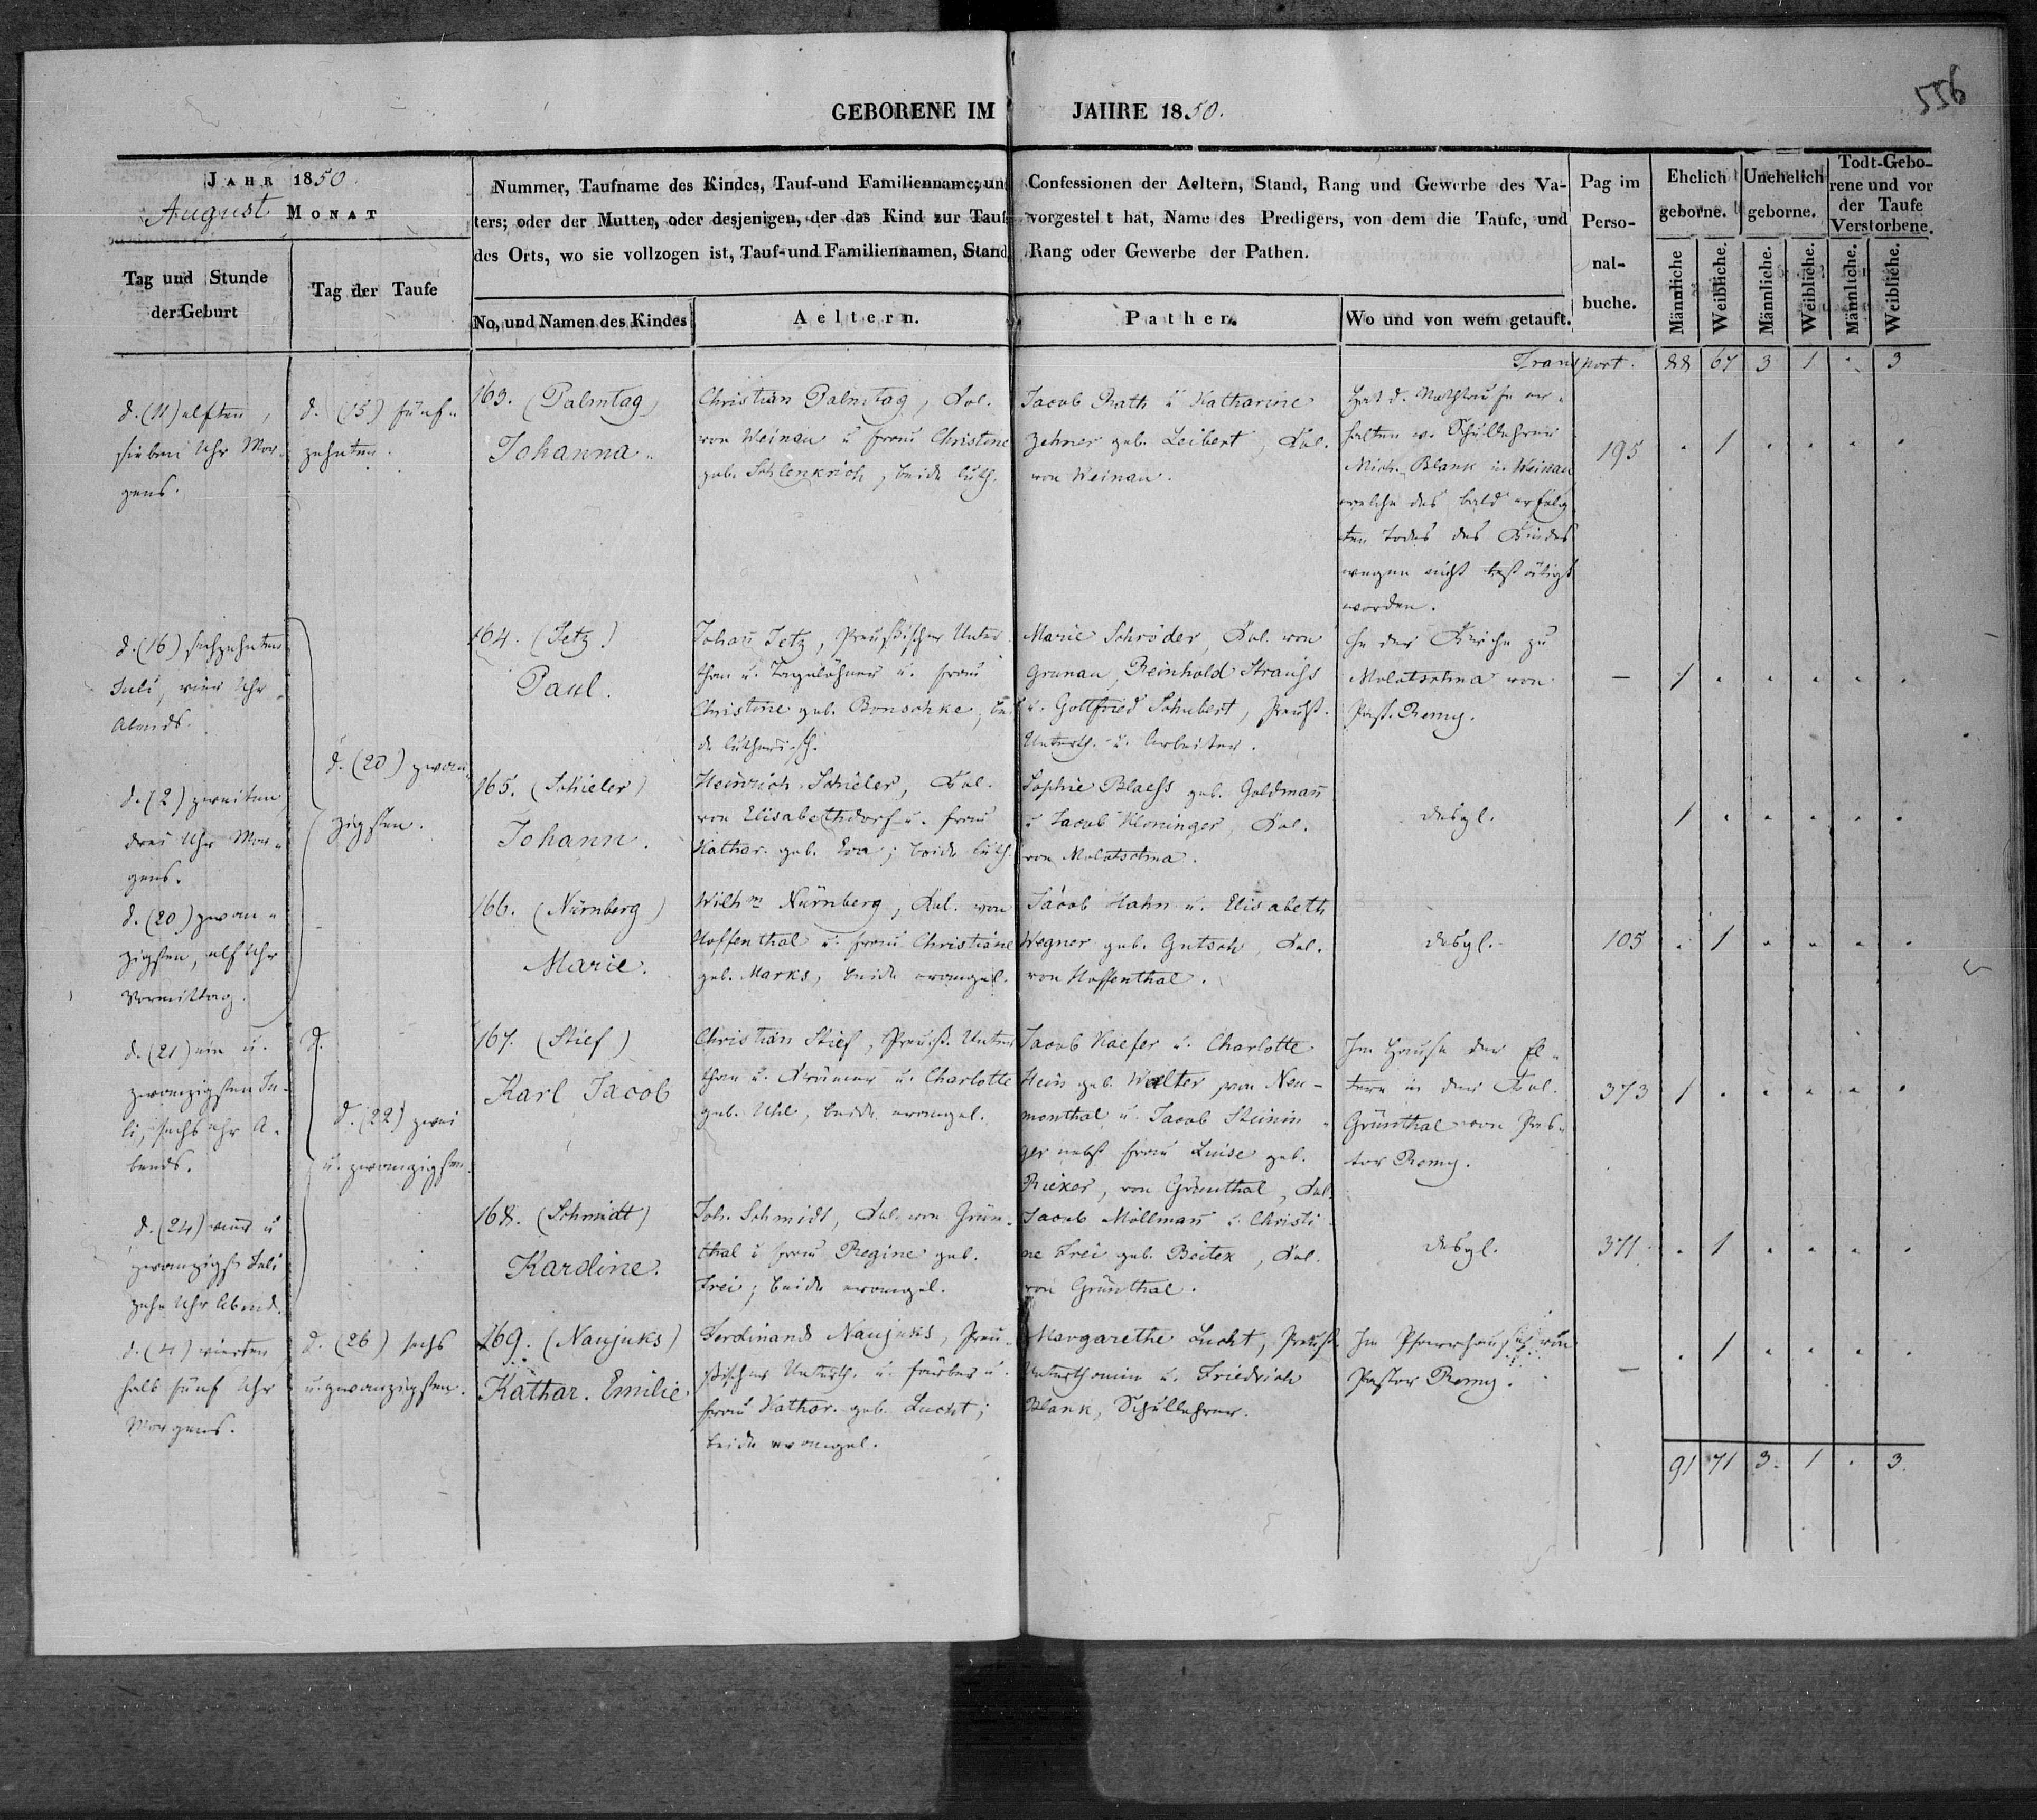 556
GEBORENE IM JAHRE 1850.
JAHR 1850.
August MONAT
Tag und Stunde
der Geburt
Tag der Taufe
Nummer, Taufname des Kindes, Tauf-und Familienname; und Confessionen der Aeltern, Stand, Rang und Gewerbe des Va-
ters; oder der Mutter, oder desjenigen, der das Kind zur Taufe vorgestellt hat, Name des Predigers, von dem die Taufe, und
des Orts, wo sie vollzogen ist, Tauf-und Familiennamen, Stand, Rang oder Gewerbe der Pathen.
No, und Namen des Kindes
Aeltern.
Pathen.
Wo und von wem getauft.
Pag im
Perso-
nal-
buche.
Ehelich
geborne.
Unehelich
geborne.
Todt-Gebo-
rene und vor
der Taufe
Verstorbene.
Männliche
Weibliche.
Männliche.
Weibliche.
Männliche.
Weibliche.
Transport. 88 67 3 1 . 3
d. (11) elften,
sieben Uhr Mor-
gens.
d. (15) fünf-
zehnten.
163. (Palmtag)
Johanna.
Christian Palmtag, Kol.
von Weinau u Frau Christine
geb. Schlenkrich, beide luth.
Jacob Rath u Katharine
Zehner geb. Leibert, Kol.
von Weinau.
Hat d. Nothtaufe er-
halten v. Schullehrer
Mich. Blank in Weinau
welche des bald erfolg
ten Todes des Kindes
wegen nicht bestätigt
worden.
195 . 1 . . . .
d. (16) sechzehnten
Juli, vier Uhr
Abends.
d. (20) zwan-
zigsten.
164. (Jetz)
Paul.
Johan̄ Jetz, Preußischer Unter
than u. Tagelöhner u. Frau
Christine geb. Bonschke, bei
de lutherisch.
Marie Schröder, Kol. von
Grunau, Reinhold Strauss
u. Gottfried Schubert, Preuß.
Unterth. u. Arbeiter.
In der Kirche zu
Molotschna von
Past. Remy.
— 1 . . . . .
d. (2) zweiten
drei Uhr Mor-
gens.
165. (Schieler)
Johann.
Heinrich Schieler, Kol.
von Elisabethdorf u. Frau
Kathar. geb. Eva; beide luth.
Sophie Blaess geb. Goldman̄
u Jacob Kloninger, Kol.
von Molotschna.
desgl.
1 . . . . .
d. (20) zwan-
zigsten, elf Uhr
Vormittag.
166. (Nürnberg)
Marie.
Wilhm Nürnberg, Kol. von
Hoffenthal u. Frau Christiane
geb. Marks, beide evangel.
Jacob Hahn u. Elisabeth
Wegner geb. Gutsch Kol.
von Hoffenthal.
desgl.
105 . 1 . . . .
d. (21) ein u.
zwanzigsten Ju-
li, sechs Uhr A-
bends.
d.
d. (22) zwei
u. zwanzigsten.
167. (Stief)
Karl Jacob
Christian Stief, Preuß. Unter
than u. Krämer u. Charlotte
geb. Uhl, beide evangel.
Jacob Kaefer u. Charlotte
Hein geb. Walter, von Neu-
monthal u. Jacob Steinin-
ger nebst Frau Luise geb.
Rieker, von Grünthal, Kol.
Im Hause der El-
tern in der Kol.
Grünthal von Pas-
tor Remy.
373 1 . . . . .
d. (24) vier u
zwanzigst Juli
zehn Uhr Abend.
168. (Schmidt)
Karoline.
Joh. Schmidt, Kol. von Grün-
thal u Frau Regine geb.
Frei; beide evangel.
Jacob Möllman̄ u. Christi
ne Frei geb. Beitex, Kol.
von Grünthal.
desgl.
371. . 1 . . . .
d. (4) vierten
halb fünf Uhr
Morgens.
d. (26) sechs
u. zwanzigsten.
169. (Naujuks)
Kathar. Emilie
Ferdinand Naujuks, Preu-
ßischer Unterth. u. Färber u.
Frau Kathar. geb. Lucht;
beide evangel.
Margarethe Lucht, Preuß.
Unterthanin u. Friedrich
Blank, Schullehrer.
Im Pfarrhause von
Pastor Remy.
— . 1 . . . .
91 71 3. 1 . 3.